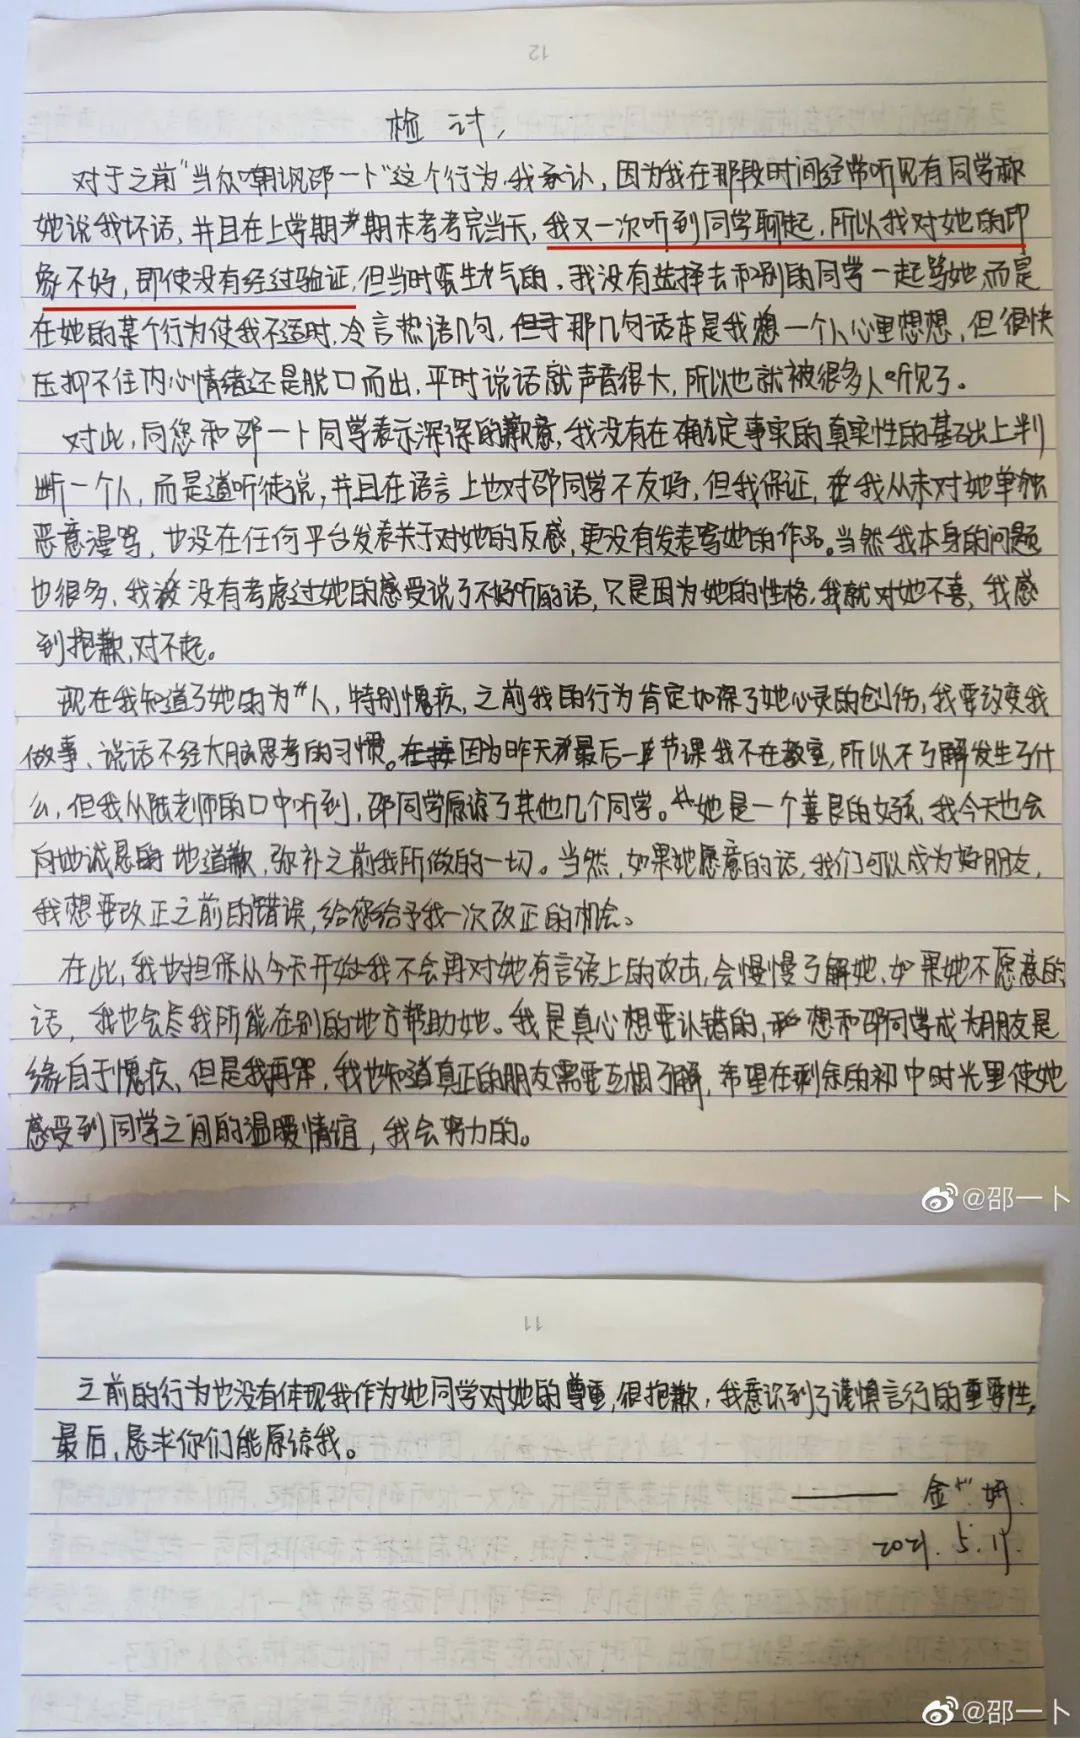 12
检讨
对于之前"当众嘲讽邵一卜"这个行为,我承认,因为我在那段时间经常听见有同学称
她说我坏话,并且在上学期期末考考完当天,我又一次听到同学聊起,所以我对她的印
象不好,即使没有经过验证,但当时蛮生气的,我没有选择去和别的同学一起骂她,而是
在她的某个行为使我不适时,冷言热语几句,但那几句话本是我想一个人心里想想,但很快
压抑不住内心情绪还是脱口而出,平时说话就声音很大,所以也就被很多人听见了。
对此,向您和邵一卜同学表示深深的歉意,我没有在确定事实的真实性的基础上判
断一个人,而是道听徒说,并且在语言上也对邵同学不友好,但我保证,我从未对她单独
恶意漫骂,也没在任何平台发表关于对她的反感,更没有发表骂她的作品。当然我本身的问题
也很多,我没有考虑过她的感受说了不好听的话,只是因为她的性格,我就对她不喜,我感
到抱歉,对不起。
现在我知道了她的为人,特别愧疚,之前我的行为肯定加深了她心灵的创伤,我要改变我
做事、说话不经大脑思考的习惯。因为昨天最后一节课我不在教室,所以不了解发生了什
么,但我从陆老师的口中听到,邵同学原谅了其他几个同学。她是一个善良的好孩,我今天也会
向她诚恳的地道歉,弥补之前我所做的一切。当然,如果她愿意的话,我们可以成为好朋友,
我想要改正之前的错误,给您给予我一次改正的机会。
在此,我也担保从今天开始我不会再对她有言语上的攻击,会慢慢了解她,如果她不愿意的
话,我也会尽我所能在别的地方帮助她。我是真心想要认错的,想和邵同学成为朋友是
缘自于愧疚,但是我,我也知道真正的朋友需要互相了解,希望在剩余的初中时光里使她
感受到同学之间的温暖情谊,我会努力的。
@邵一卜
11
之前的行为也没有体现我作为她同学对她的尊重,很抱歉,我意识到了谨慎言行的重要性,
最后,恳求你们能原谅我。
—— 金 妍
2021.5.19.
@邵一卜